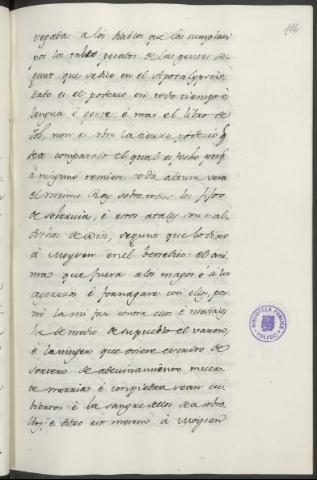 114
vegadas a los diablos que las cumplan
por los tales pecados de las gentes se-
gunt que se dice en el Apocalypsis
dado es el poderio en todo tiempo è
lengua è gente: è mas el libro de
Job, non es sobre la tierra poderio q
sea comparado el qual es fecho porq
à ninguno temiese todo altura vera
el mesmo Rey sobre todos los fijos
de soberuia, è estos atales son mal-
ditos de Dios, segunt que lo dixo
à Moysen en el Levitico: el ani-
ma que fuera a los magos è à los
agoreros è fornagare con ellos por-
nè la mi faz contra ellos è matarla
he de medio de su pueblo el varon,
è la muger que oviere espiritu de
sortero de adevinamiento muera
de morria è con piedra sean cu-
biertos è la sangre dellos sea sobre
ellos: è dixo eso mesmo à Moysen
BIBLIOTECA PUBLICA
TOLEDO